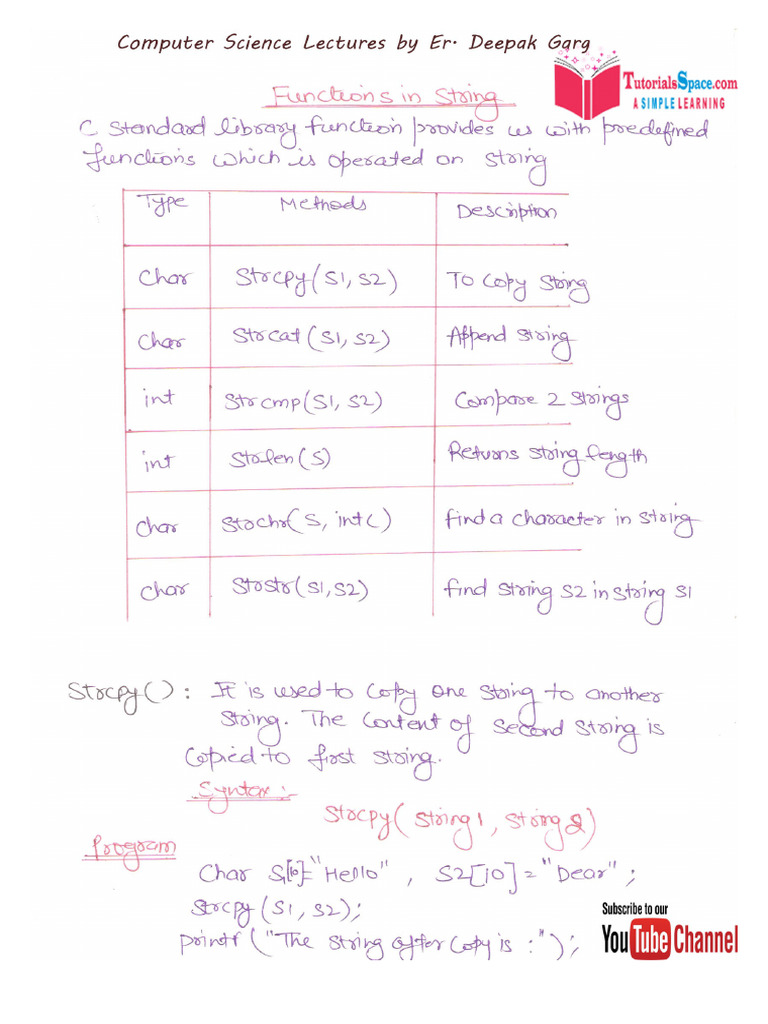 Computer Science Lectures by Er. Deepak Garg
TutorialsSpace.com
A SIMPLE LEARNING
Functions in String
C Standard library function provides us with predefined
functions which is operated on string
Type Methods Description
Char Strcpy(S1, S2) To Copy String
Char Strcat(S1, S2) Append string
int Strcmp(S1, S2) Compare 2 strings
int Strlen(S) Returns string length
Char Strchr(S, int C) find a character in string
Char Strstr(S1, S2) find string S2 in string S1
Strcpy() : It is used to copy one string to another
string. The content of second string is
Copied to first string.
Syntax :-
Strcpy( String1, String2)
Program
Char S1[10]="Hello", S2[10]="Dear";
Strcpy(S1, S2);
printf("The string after copy is :");
Subscribe to our
YouTube Channel